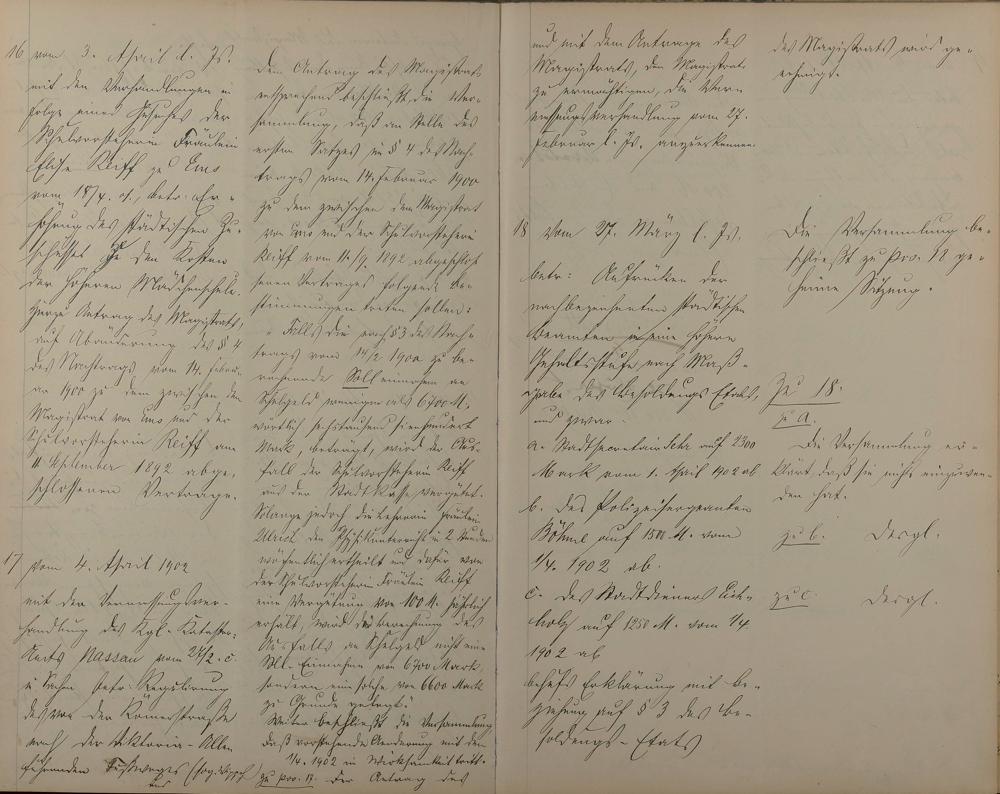 16 vom 3. April l. Js.
mit den Verhandlungen in
Folge eines Gesuches der
Schulvorsteherin Fräulein
Elise Reiff zu Ems
vom 18/4. 01., betr. Er-
höhung des städtischen Zu-
schusses zu den Kosten
der höheren Mädchenschule.
Antrag des Magistrats,
auf Abänderung des § 4
des Nachtrags vom 14. Febru-
ar 1900 zu dem zwischen dem
Magistrat von Ems und der
Schulvorsteherin Reiff am
11. September 1892 abge-
schlossenen Vertrage.
17 vom 4. April 1902
mit der Vermessungsver-
handlung des Kgl. Kataster-
Amts Nassau vom 27/2. c.
in Sachen betr. Regulirung
des von der Römerstraße
nach der Viktoria-Allee
führenden Fußweges (sog.
Dem Antrag des Magistrats
entsprechend beschließt die Ver-
sammlung, daß an Stelle des
ersten Satzes im § 4 des Nach-
trags vom 14. Februar 1900
zu dem zwischen dem Magistrat
von Ems und der Schulvorsteherin
Reiff vom 11./9. 1892 abgeschlos-
senen Vertrages folgende Be-
stimmungen treten sollen:
"Falls die nach § 3 des Nach-
trags vom 14/2 1900 zu be-
rechnende Solleinnahme an
Schulgeld weniger als 6700 M.
wörtlich sechstausend siebenhundert
Mark, beträgt, wird der Aus-
fall der Schulvorsteherin Reiff
aus der Stadtkasse vergütet.
Solange jedoch die Lehrerin Fräulein
Ulrici den Physikunterricht in 2 Stunden
wöchentlich ertheilt und dafür von
der Schulvorsteherin Fräulein Reiff
eine Vergütung von 100 M. jährlich
erhält, wird bei Berechnung des
Ausfalls an Schulgeld nicht eine
Soll-Einnahme von 6700 Mark
sondern eine solche von 6600 Mark
zu Grunde gelegt."
Weiter beschließt die Versammlung
daß vorstehende Aenderung mit dem
1/4. 1902 in Wirksamkeit tritt.
zu pos. 17. Der Antrag des
und mit dem Antrage des
Magistrats, den Magistrat
zu ermächtigen, die Ver-
messungsverhandlung vom 27.
Februar l. Js. anzuerkennen.
des Magistrats wird ge-
nehmigt.
18 vom 27. März l. Js.
betr: Aufrücken der
nachbezeichneten städtischen
Beamten in eine höhere
Gehaltsstufe nach Maß-
gabe des Besoldungs Etats,
und zwar:
a. Stadtsecretair Fehr auf 2300
Mark vom 1. April 1902 ab
b. des Polizeisergeanten
Böhme auf 1500 M. vom
1/4. 1902 ab.
c. des Stadtdieners Eich-
holz auf 1250 M. vom 1/4
1902 ab
behufs Erklärung mit Be-
ziehung auf § 3 des Be-
soldungs-Etats
Die Versammlung be-
schließt zu pos. 18 ge-
heime Sitzung.
Zu 18.
zu a.
Die Versammlung er-
klärt, daß sie nichts einzuwen-
den hat.
zu b. Dergl.
zu c. Dergl.